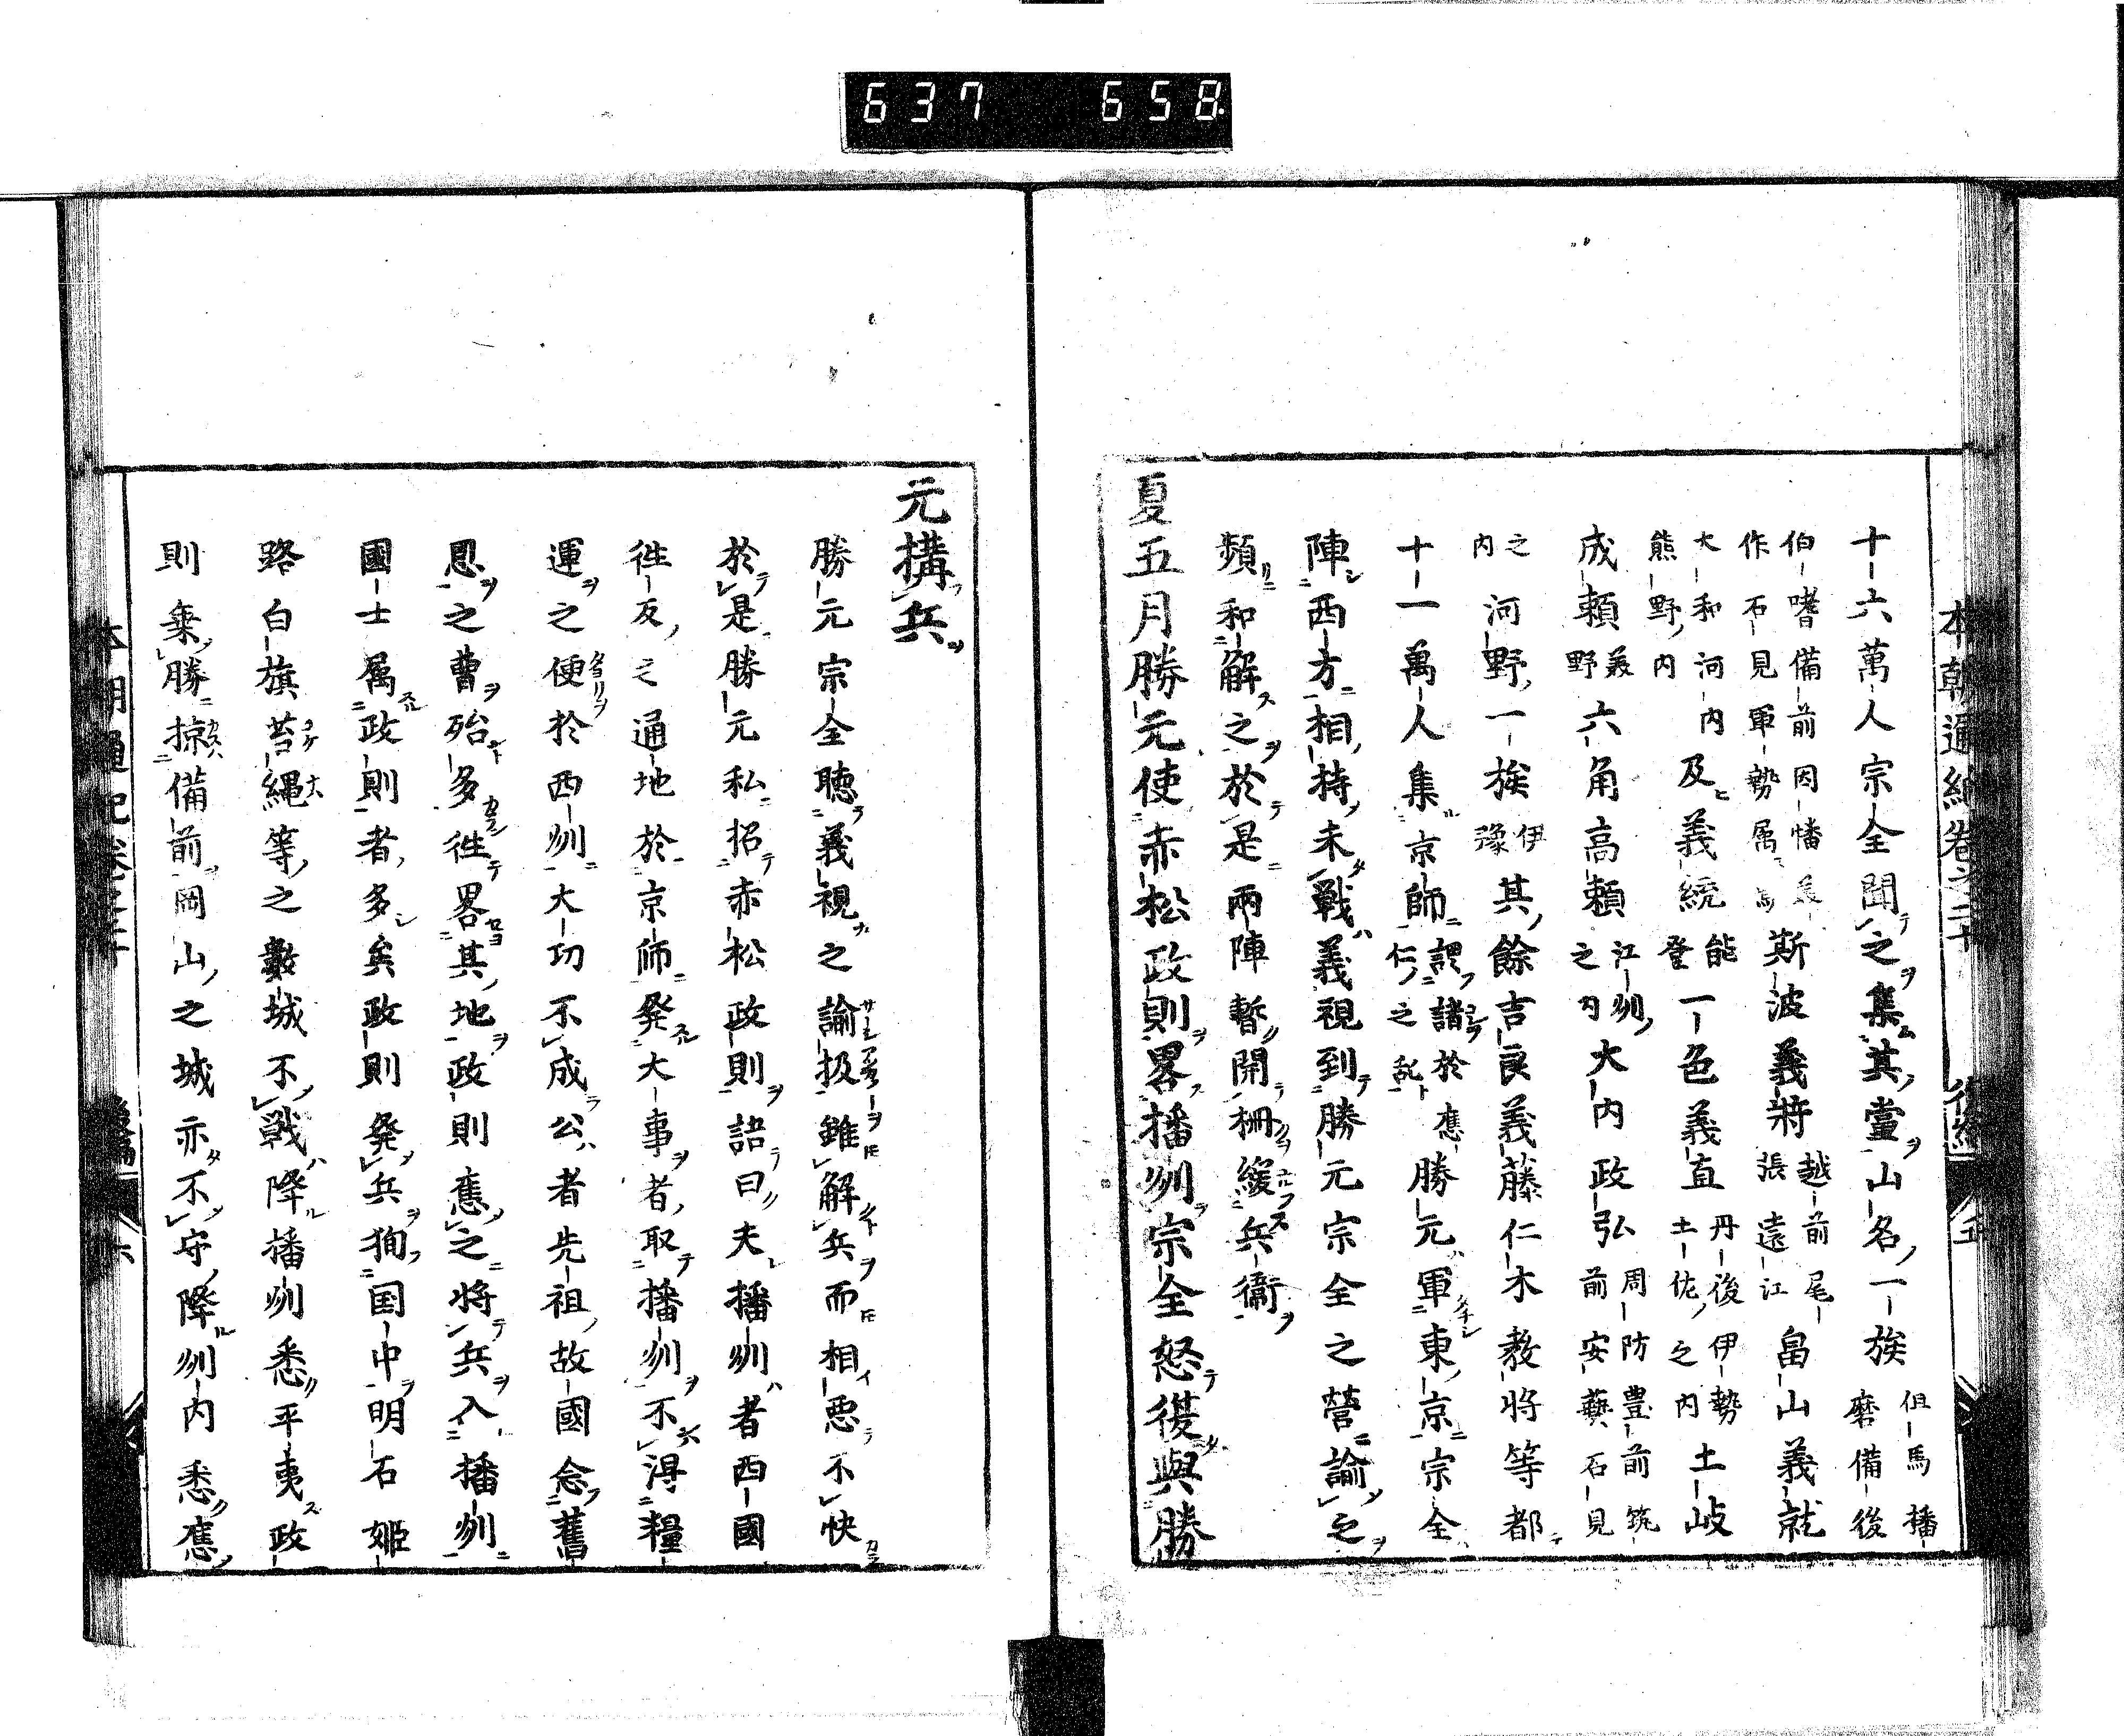 637 658
本朝通紀卷之二十 後編 五
十六萬人宗全聞之集其黨山名一族 但馬播磨備後
伯耆備前因幡美作石見軍勢属 斯波義將 越前尾張遠江 畠山義就
大和河内熊野内 及義統 能登 一色義直 丹後伊勢土佐之内 土岐
成頼 美野 六角高頼 江州之内 大内政弘 周防豊前筑前安藝石見
之内 河野一族 伊豫 其餘吉良義藤仁木教将等都
十一萬人集京師 謂諸於應仁之乱 勝元軍東京宗全
陣西方相持未戰義視到勝元宗全之營諭之
頻和解之於是兩陣暫開柵緩兵衞
夏五月勝元使赤松政則畧播州宗全怒復與勝
元搆兵
勝元宗全聴義視之諭扱雖解兵而相悪不快
於是勝元私招赤松政則語曰夫播州者西國
徃反之通地於京師発大事者取播州不得糧
運之便於西州大功不成公者先祖故國念舊
恩之曹殆多徃畧其地政則應之将兵入播州
國士属政則者多矣政則発兵狥国中明石姫
路白旗苔縄等之數城不戦降播州悉平夷政
則乗勝掠備前岡山之城亦不守降州内悉應
本朝通紀卷之二十 後編 六